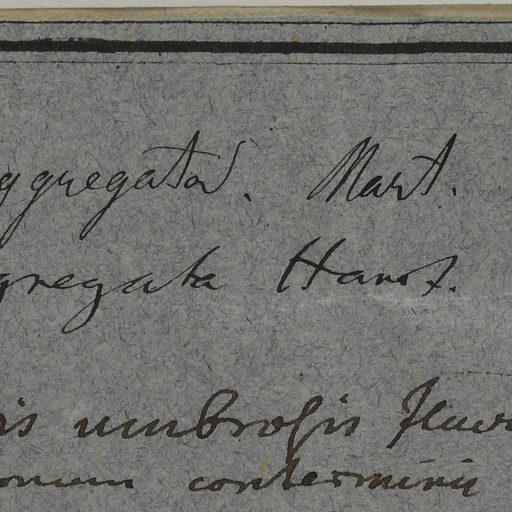 ggregata. Mart.
gregata Hariot.
is umbrosis Fluvi
onum conterminis